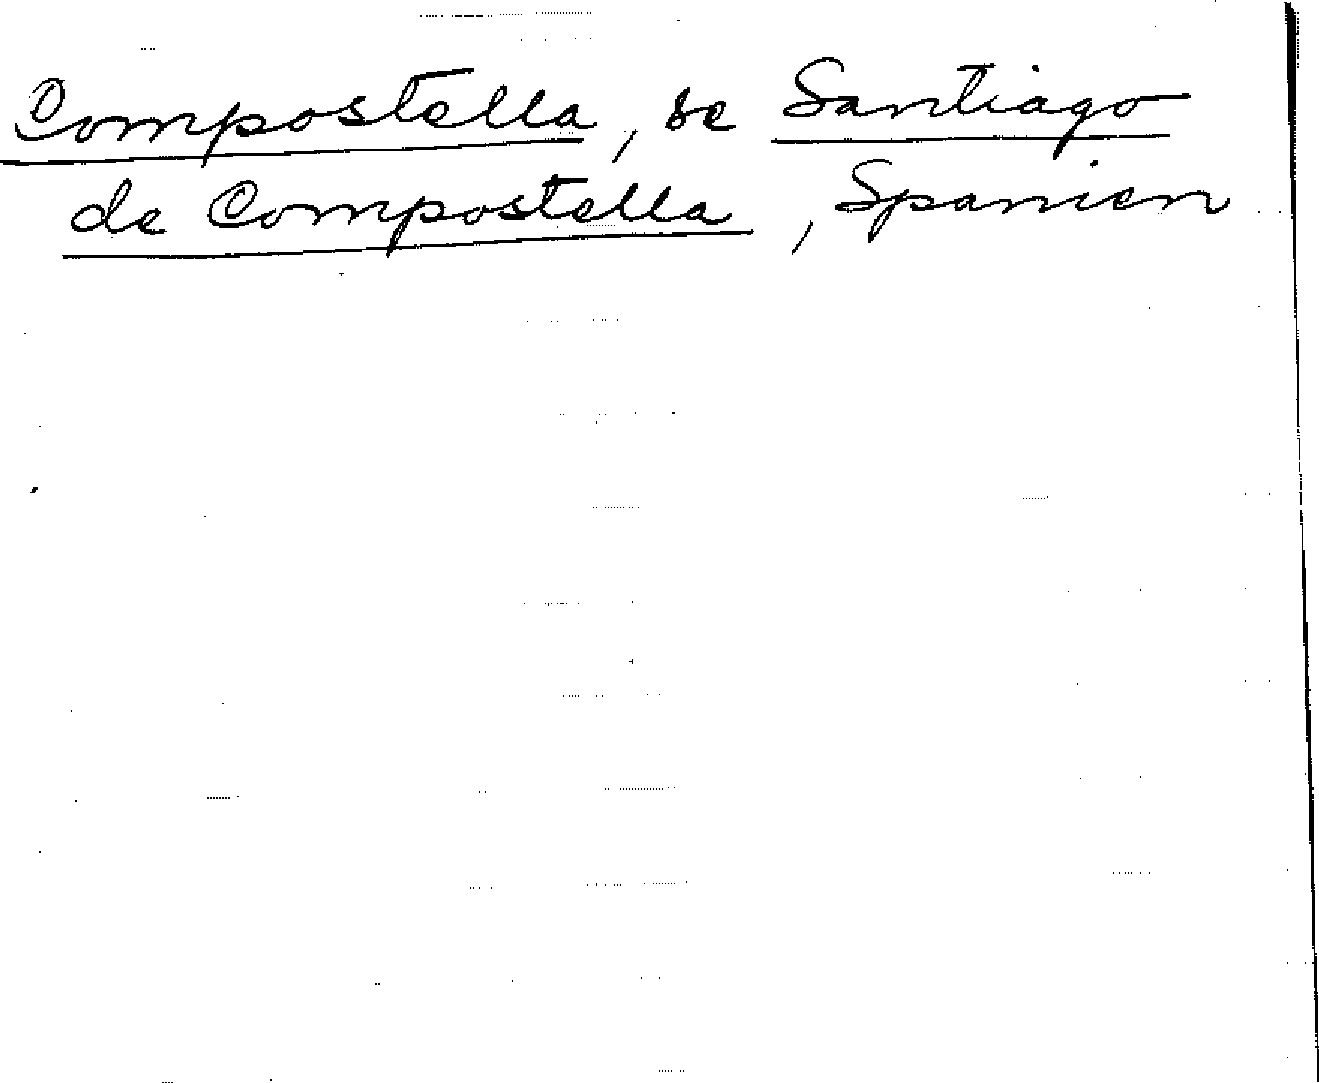 Compostella, se Santiago
de Compostella, Spanien